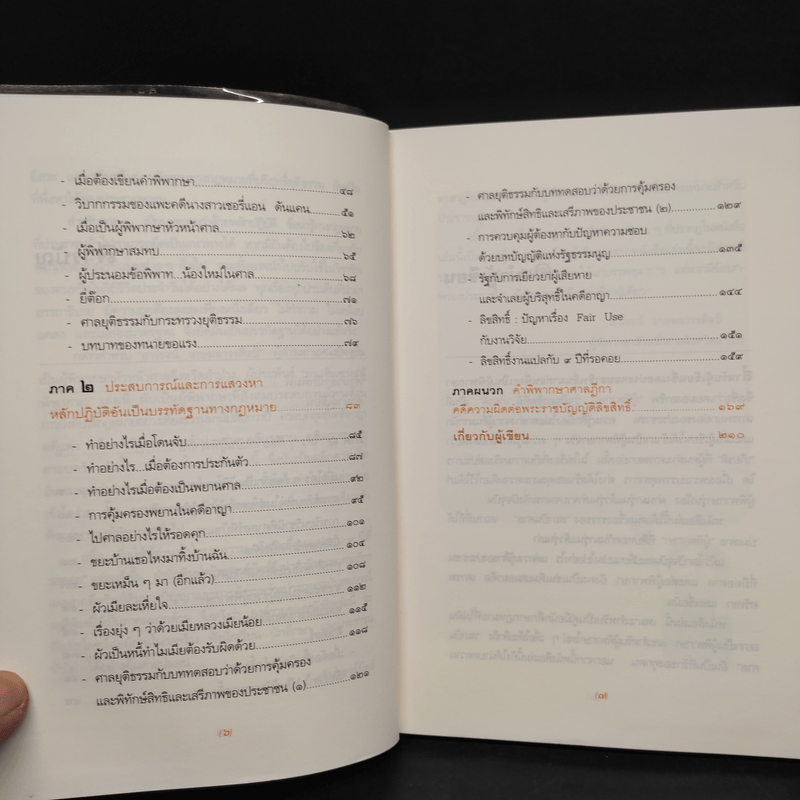 - เมื่อต้องเขียนคำพิพากษา....................................๔๘
- วิบากกรรมของแพะคดีนางสาวเชอรี่แอน ดันแคน....๕๑
- เมื่อเป็นผู้พิพากษาหัวหน้าศาล............................๖๒
- ผู้พิพากษาสมทบ...............................................๖๕
- ผู้ประนอมข้อพิพาท...น้องใหม่ในศาล..................๖๘
- ยี่ต๊อก..............................................................๗๑
- ศาลยุติธรรมกับกระทรวงยุติธรรม........................๗๖
- บทบาทของทนายขอแรง....................................๗๙
ภาค ๒ ประสบการณ์และการแสวงหา
หลักปฏิบัติอันเป็นบรรทัดฐานทางกฎหมาย..................๘๓
- ทำอย่างไรเมื่อโดนจับ........................................๘๕
- ทำอย่างไร...เมื่อต้องการประกันตัว......................๘๗
- ทำอย่างไรเมื่อต้องเป็นพยานศาล........................๙๒
- การคุ้มครองพยานในคดีอาญา............................๙๕
- ไปศาลอย่างไรให้รอดคุก..................................๑๐๑
- ขยะบ้านเธอไหงมาทิ้งบ้านฉัน............................๑๐๔
- ขยะเหม็น ๆ มา (อีกแล้ว)..................................๑๐๘
- ผัวเมียละเหี่ยใจ................................................๑๑๒
- เรื่องยุ่ง ๆ ว่าด้วยเมียหลวงเมียน้อย....................๑๑๕
- ผัวเป็นหนี้ทำไมเมียต้องรับผิดด้วย......................๑๑๘
- ศาลยุติธรรมกับบททดสอบว่าด้วยการคุ้มครอง
และพิทักษ์สิทธิและเสรีภาพของประชาชน (๑)............๑๒๑
(๖)
- ศาลยุติธรรมกับบททดสอบว่าด้วยการคุ้มครอง
และพิทักษ์สิทธิและเสรีภาพของประชาชน (๒)............๑๒๙
- การควบคุมผู้ต้องหากับปัญหาความชอบ
ด้วยบทบัญญัติแห่งรัฐธรรมนูญ.............................๑๓๕
- รัฐกับการเยียวยาผู้เสียหาย
และจำเลยผู้บริสุทธิ์ในคดีอาญา............................๑๔๔
- ลิขสิทธิ์ : ปัญหาเรื่อง Fair Use
กับงานวิจัย........................................................๑๕๑
- ลิขสิทธิ์งานแปลกับ ๙ ปีที่รอคอย.......................๑๕๙
ภาคผนวก คำพิพากษาศาลฎีกา
คดีความผิดต่อพระราชบัญญัติลิขสิทธิ์....................๑๖๙
เกี่ยวกับผู้เขียน..................................................๒๑๐
(๗)